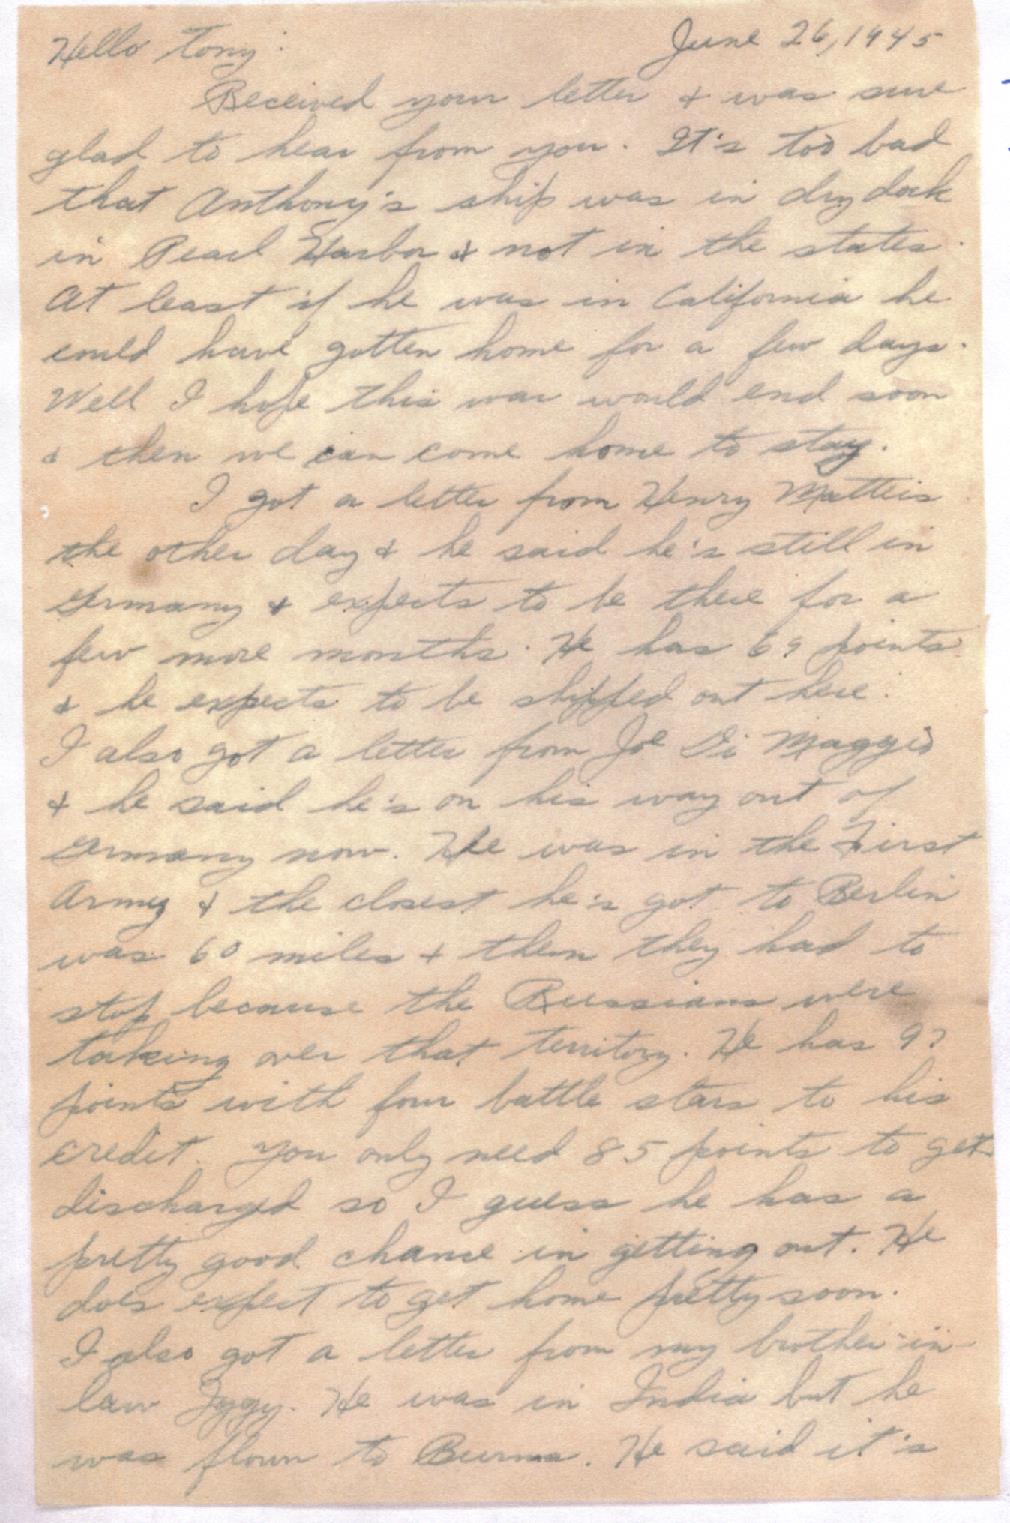 Hello Tony: June 26, 1945
Received your letter & was sure
glad to hear from you. It's too bad
that Anthony's ship was in dry dock
in Pearl Harbor & not in the states.
At least if he was in California he
could have gotten home for a few days.
Well I hope this war would end soon
& then we can come home to stay.
I got a letter from Henry Matteis
the other day & he said he's still in
Germany & expects to be there for a
few more months. He has 69 points
& he expects to be shipped out here.
I also got a letter from Joe Di Maggio
& he said he's on his way out of
Germany now. He was in the First
Army & the closest he's got to Berlin
was 60 miles & then they had to
stop because the Russians were
taking over that territory. He has
points with four battle stars to his
credit. You only need 85 points to get
discharged so I guess he has a
pretty good chance in getting out. He
does expect to get home pretty soon.
I also got a letter from my brother-in-
law Iggy. He was in India but he
was flown to Burma. He said it's